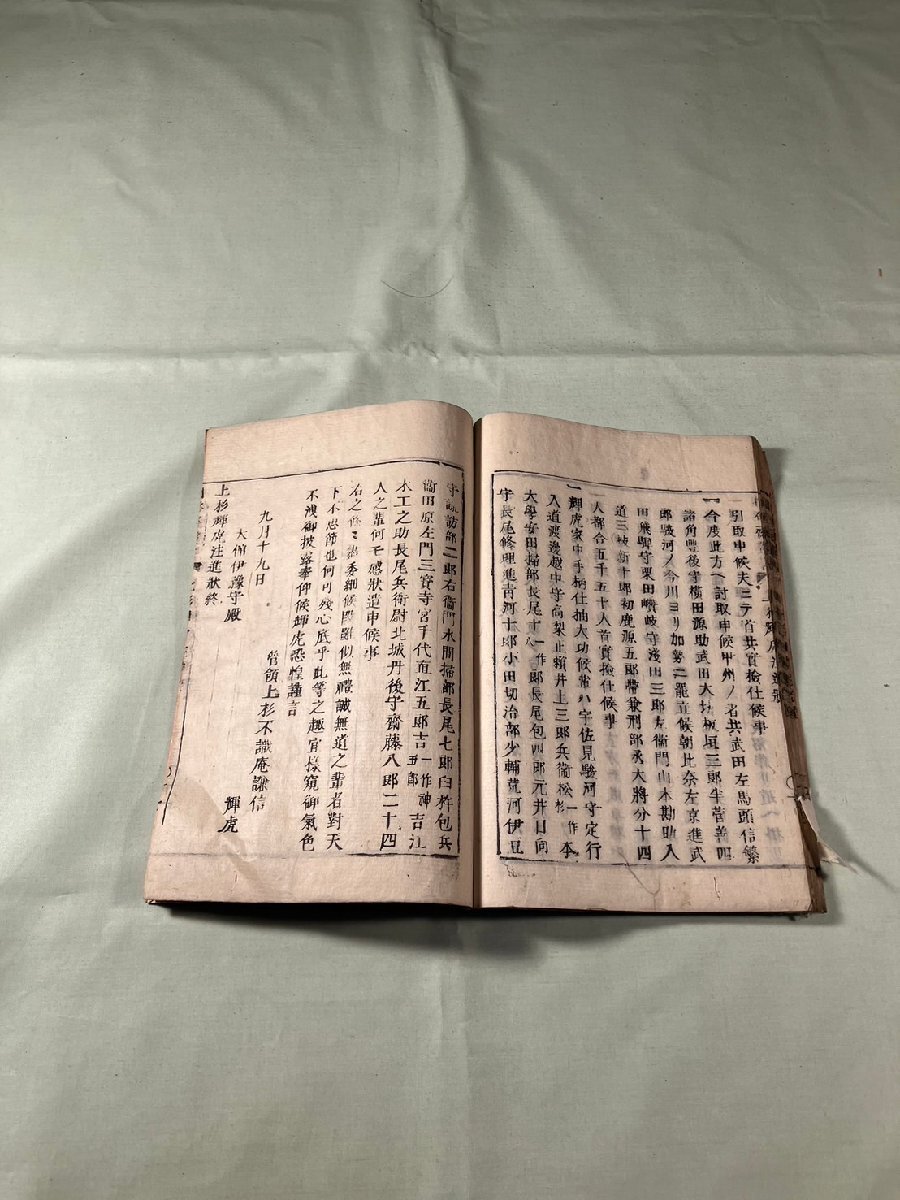 引取申候夫ニテ首共實檢仕候事
一今度此方ヘ討取申候甲州ノ名共武田左馬頭信繁
諸角豊後守横田源助武田大坊板垣三郎半菅善四
郎駿河ノ今川ヨリ加勢二罷立候朝比奈左京進武
田飛騨守栗田讃岐守淺田三郎左衛門山本勘助入
道三枝新十郎初鹿源五郎帶兼刑部丞大將分十四
人都合五千五十人首實檢仕候事
一輝虎家中手柄仕抽大功候者ハ宇佐見駿河守定行
入道渡邊越中守高梨正頼井上三郎兵衛松一作本
大學安田掃部長尾十一作郎長尾包四郎元井日向
守長尾修理進青河十郎小田切治部少輔荒河伊豆
守諏訪部二郎右衛門水間掃部長尾七郎臼杵包兵
衛田原左門三寶寺宮千代甬江五郎吉一作神吉江
五郎
木工之助長尾兵衛尉北城丹後守齋藤八郎二十四
人之輩何モ感狀遣申候事
右之條々委細候
似無禮誠無道之輩者對天
下不忠節也何可殘心底乎此等之趣宜樣窺御氣色
不洩御披露奉仰候輝虎恐惶謹言
管領上杉不識庵謙信
九月十九日 輝虎
大館伊豫守殿
上杉輝虎注進狀終